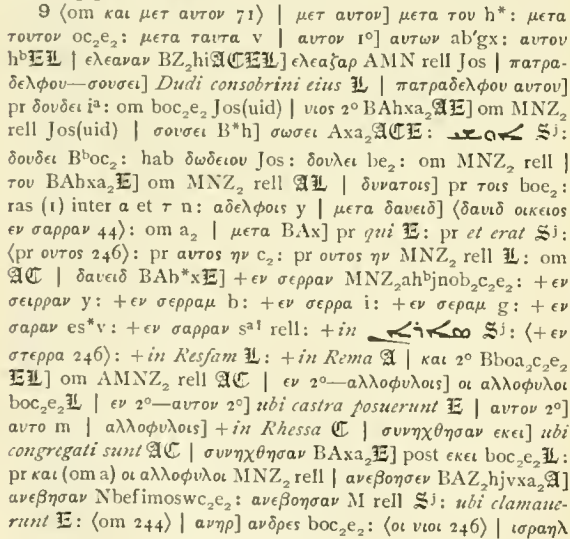 9 ⟨om και μετ αυτον 71⟩ | μετ αυτον] μετα του h*: μετα
τουτον oc₂e₂: μετα ταυτα v | αυτον 1⁰] αυτων ab'gx: αυτου
hᵇ𝕰𝕷 | ελεαναν BZ₂hi𝕬𝕮𝕰𝕷] ελεαζαρ AMN rell Jos | πατρα-
δελφου—σουσει] Dudi consobrini eius 𝕷 | πατραδελφου αυτου]
pr δουδει iᵃ: om boc₂e₂ Jos(uid) | υιος 2⁰ BAhxa₂𝕬𝕰] om MNZ₂
rell Jos(uid) | σουσει B*h] σωσει Axa₂𝕬𝕮𝕰: Sʲ:
δουδει Bᵇoc₂: hab δωδειου Jos: δουλει be₂: om MNZ₂ rell |
του BAhxa₂𝕰] om MNZ₂ rell 𝕬𝕷 | δυνατοις] pr τοις boe₂:
ras (1) inter α et τ n: αδελφοις y | μετα δαυειδ] ⟨δαυιδ οικειος
εν σαρραν 44⟩: om a₂ | μετα BAx] pr qui 𝕰: pr et erat Sʲ:
⟨pr ουτος 246⟩: pr αυτος ην c₂: pr ουτος ην MNZ₂ rell 𝕷: om
𝕬𝕮 | δαυειδ BAb*x𝕰] +εν σερραν MNZ₂ahᵇjnob₂c₂e₂: +εν
σειρραν y: +εν σερραμ b: +εν σερρα i: +εν σεραμ g: +εν
σαραν es*v: +εν σαρραν sᵃ¹ rell: +in Sʲ: ⟨+εν
στερρα 246⟩: +in Resfam 𝕷: +in Rema 𝕬 | και 2⁰ Bboa₂c₂e₂
𝕰𝕷] om AMNZ₂ rell 𝕬𝕮 | εν 2⁰—αλλοφυλοις] οι αλλοφυλοι
boc₂e₂𝕷 | εν 2⁰—αυτον 2⁰] ubi castra posuerunt 𝕰 | αυτον 2⁰]
αυτο m | αλλοφυλοις] +in Rhessa 𝕮 | συνηχθησαν εκει] ubi
congregati sunt 𝕬𝕮 | συνηχθησαν BAxa₂𝕰] post εκει boc₂e₂𝕷:
pr και (om a) οι αλλοφυλοι MNZ₂ rell | ανεβοησεν BAZ₂hjvxa₂𝕬]
ανεβησαν Nbefimoswc₂e₂: ανεβοησαν M rell Sʲ: ubi clamaue-
runt 𝕰: ⟨om 244⟩ | ανηρ] ανδρες boc₂e₂: ⟨οι υιοι 246⟩ | ισραηλ